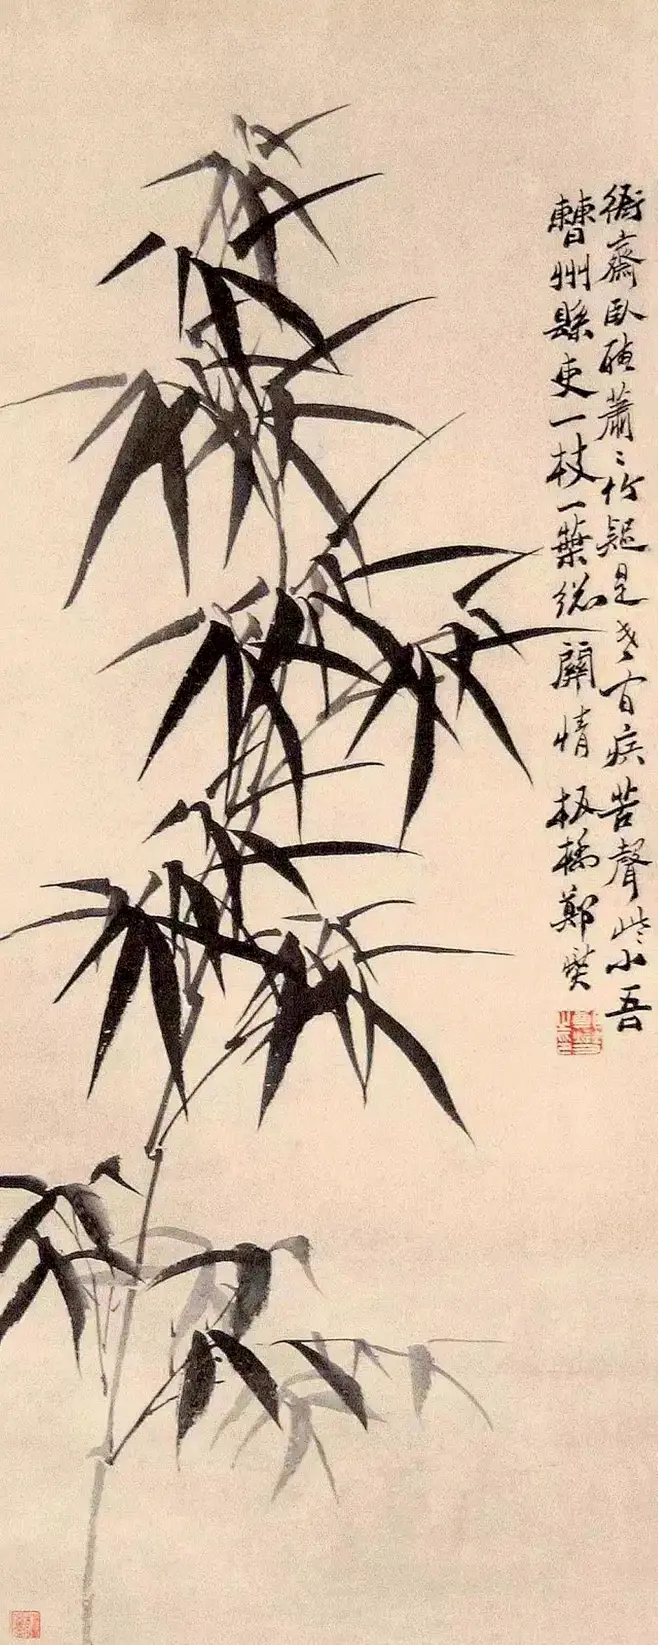 衙齋臥聽蕭〻竹疑是老百疾苦聲些小吾
曹州縣吏一枝一葉總關情 板橋鄭燮